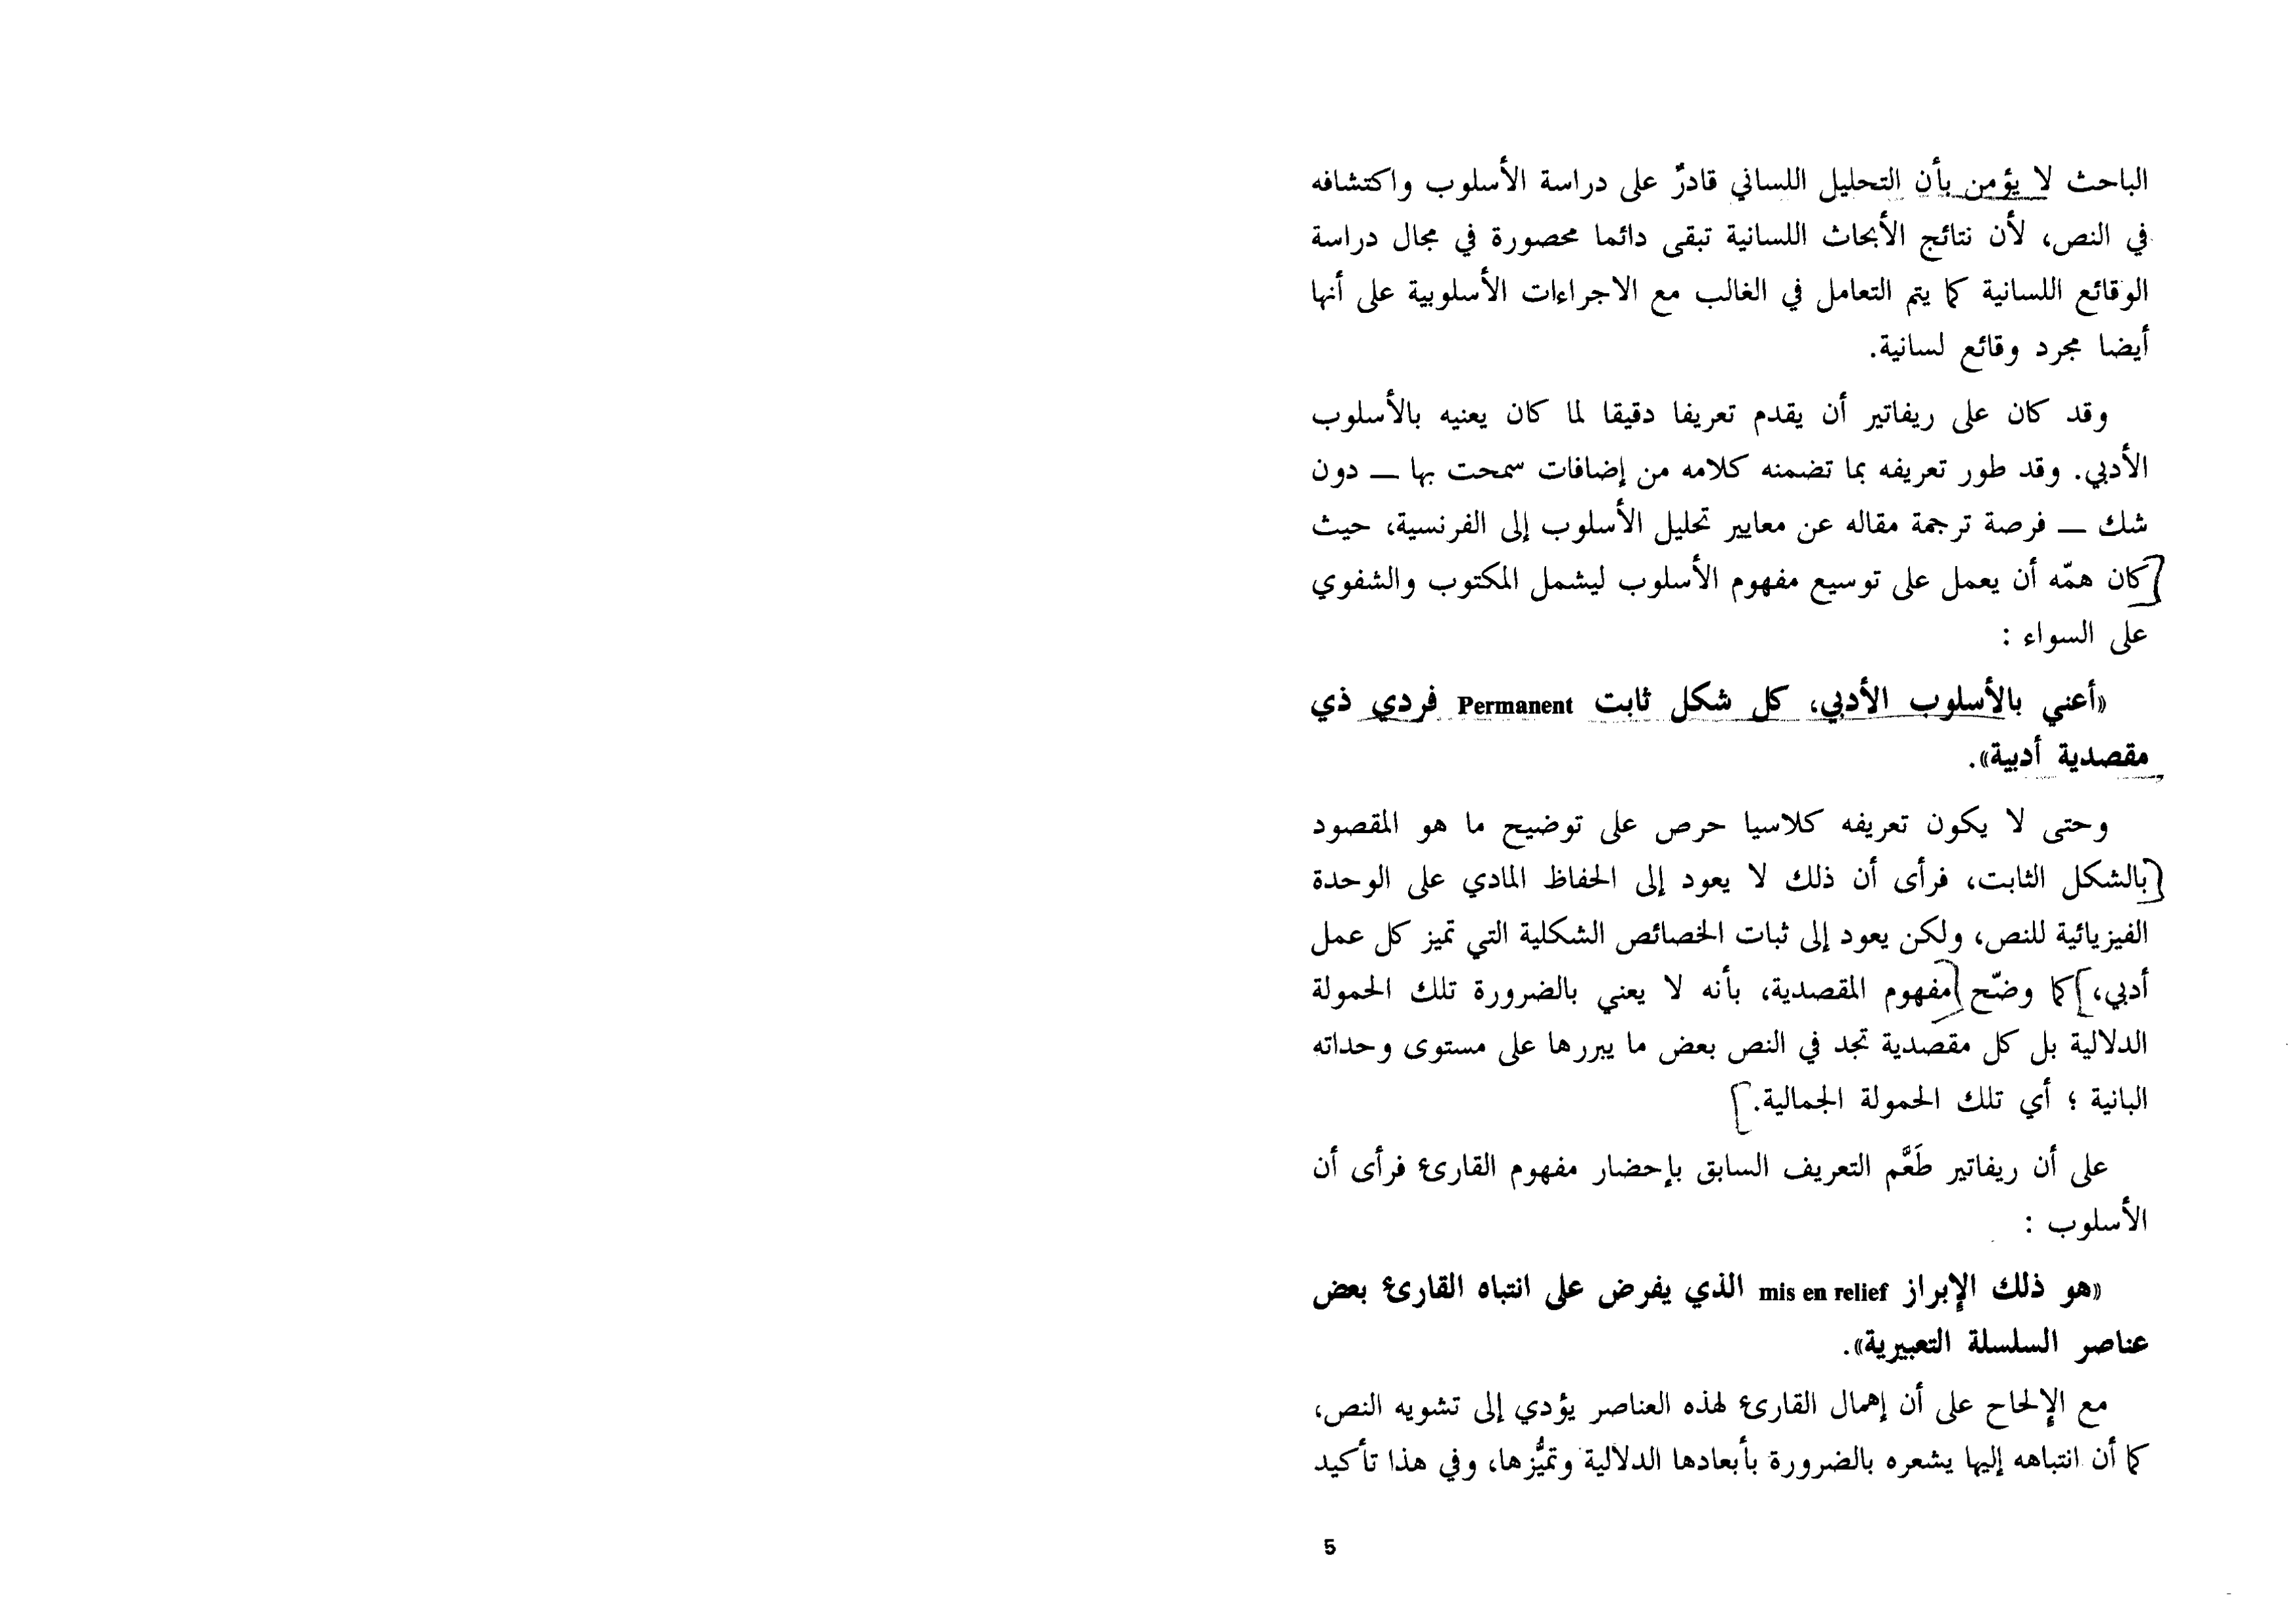 الباحث لا يؤمن بأن التحليل اللساني قادرٌ على دراسة الأسلوب واكتشافه
في النص، لأن نتائج الأبحاث اللسانية تبقى دائما محصورة في مجال دراسة
الوقائع اللسانية كما يتم التعامل في الغالب مع الاجراءات الأسلوبية على أنها
أيضا مجرد وقائع لسانية.
وقد كان على ريفاتير أن يقدم تعريفا دقيقا لما كان يعنيه بالأسلوب
الأدبي. وقد طور تعريفه بما تضمنه كلامه من إضافات سمحت بها — دون
شك — فرصة ترجمة مقاله عن معايير تحليل الأسلوب إلى الفرنسية، حيث
كان همّه أن يعمل على توسيع مفهوم الأسلوب ليشمل المكتوب والشفوي
على السواء :
«أعني بالأسلوب الأدبي، كل شكل ثابت Permanent فردي ذي
مقصدية أدبية».
وحتى لا يكون تعريفه كلاسيا حرص على توضيح ما هو المقصود
بالشكل الثابت، فرأى أن ذلك لا يعود إلى الحفاظ المادي على الوحدة
الفيزيائية للنص، ولكن يعود إلى ثبات الخصائص الشكلية التي تميز كل عمل
أدبي، كما وضّح مفهوم المقصدية، بأنه لا يعني بالضرورة تلك الحمولة
الدلالية بل كل مقصدية تجد في النص بعض ما يبررها على مستوى وحداته
البانية ؛ أي تلك الحمولة الجمالية.
على أن ريفاتير طَعَّم التعريف السابق بإحضار مفهوم القارئ فرأى أن
الأسلوب :
«هو ذلك الإبراز mis en relief الذي يفرض على انتباه القارئ بعض
عناصر السلسلة التعبيرية».
مع الإلحاح على أن إهمال القارئ لهذه العناصر يؤدي إلى تشويه النص،
كما أن انتباهه إليها يشعره بالضرورة بأبعادها الدلالية وتميُّزها، وفي هذا تأكيد
5